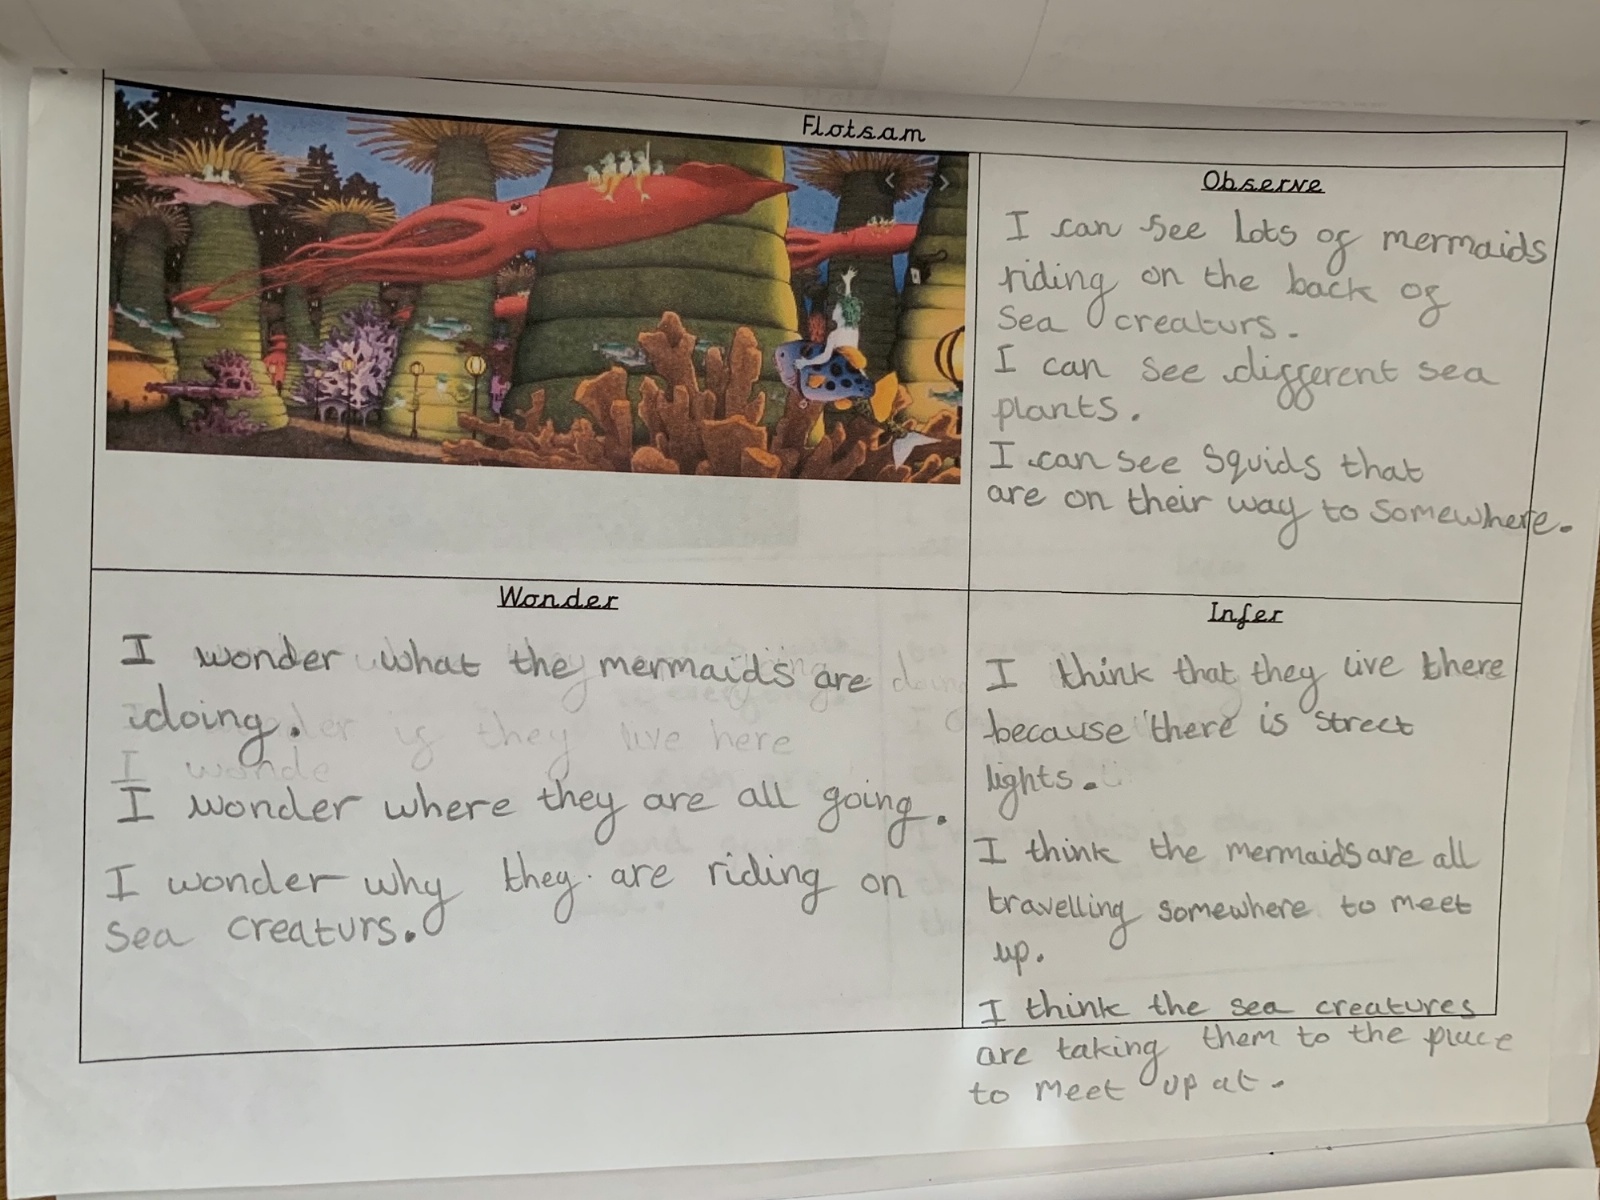 Flotsam
Observe
I can see lots of mermaids
riding on the back of
sea creaturs.
I can see different sea
plants.
I can see squids that
are on their way to somewhere.
Wonder
I wonder what the mermaids are
doing.
is they live here
I wonde
I wonder where they are all going.
I wonder why they are riding on
sea creaturs.
Infer
I think that they live there
because there is street
lights.
I think the mermaids are all
travelling somewhere to meet
up.
I think the sea creatures
are taking them to the place
to meet up at.